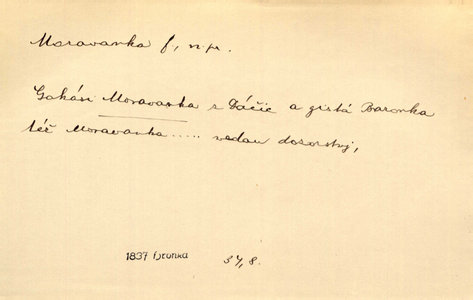 Moravanka f, n. pr.
Gakási Moravanka z Dáčic a gistá Baronka
též Moravanka ..... vedau dozorstwj,
1837 Hronka 3¹/, 8.